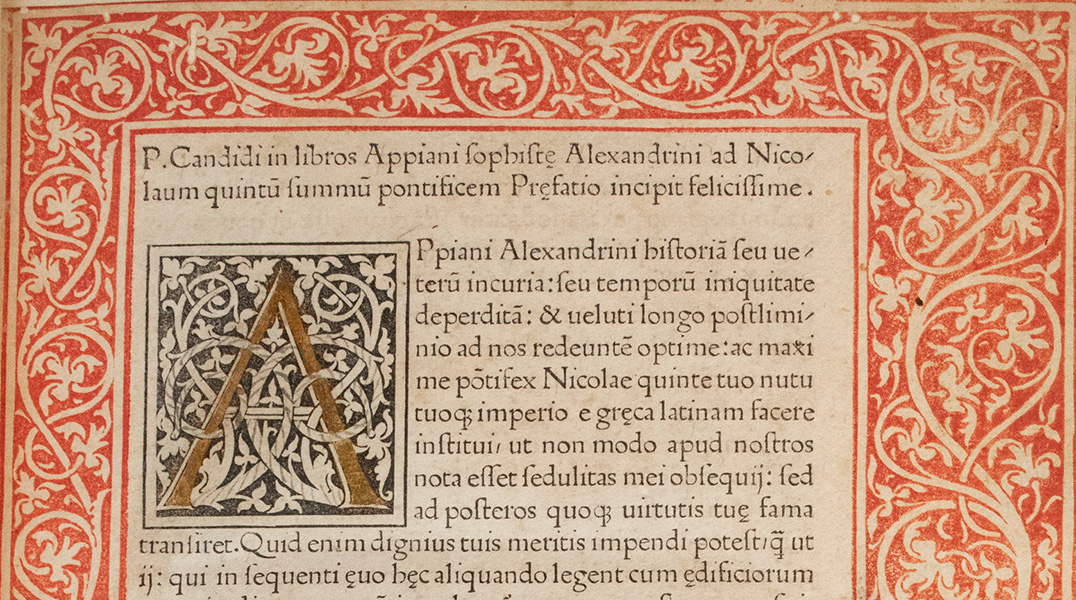 P. Candidi in libros Appiani ſophiſtę Alexandrini ad Nico⸗
laum quintū ſummū pontificem Pręfatio incipit feliciſſime.
APpiani Alexandrini hiſtoriā ſeu ue⸗
terū incuria: ſeu temporū iniquitate
deperditā: & ueluti longo poſtlimi⸗
nio ad nos redeuntē optime: ac maxi
me pōtifex Nicolae quinte tuo nutu
tuoqꝫ imperio e gręca latinam facere
inſtitui, ut non modo apud noſtros
nota eſſet ſedulitas mei obſequij: ſed
ad poſteros quoqꝫ uirtutis tuę fama
tranſiret. Quid enim dignius tuis meritis impendi poteſt, q̄ ut
ij: qui in ſequenti ęuo hęc aliquando legent cum ędificiorum